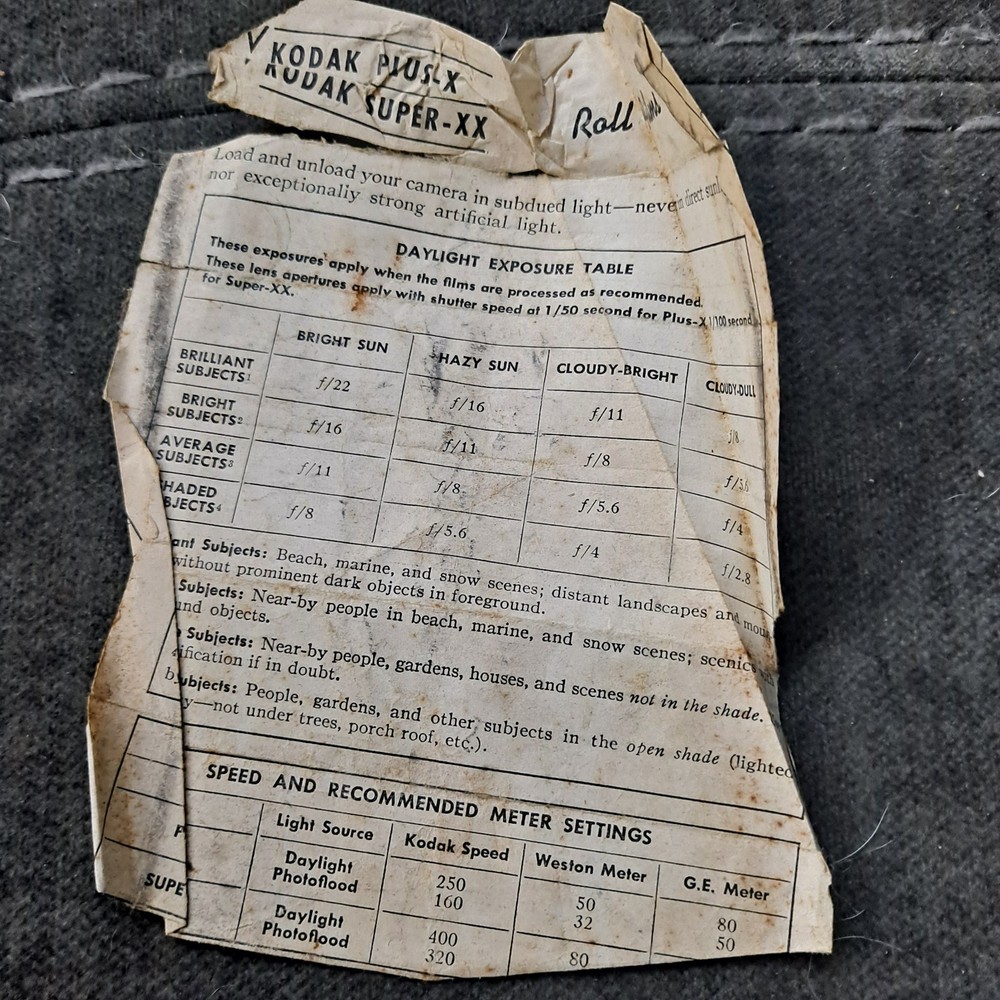 KODAK PLUS-X
KODAK SUPER-XX
Roll
Load and unload your camera in subdued light—never in direct sunl
nor exceptionally strong artificial light.
DAYLIGHT EXPOSURE TABLE
These exposures apply when the films are processed as recommended.
These lens apertures apply with shutter speed at 1/50 second for Plus-X 1/100 second
for Super-XX.
BRIGHT SUN HAZY SUN CLOUDY-BRIGHT CLOUDY-DULL
BRILLIANT SUBJECTS¹ f/22 f/16 f/11 f/8
BRIGHT SUBJECTS² f/16 f/11 f/8 f/5.6
AVERAGE SUBJECTS³ f/11 f/8 f/5.6 f/4
HADED BJECTS⁴ f/8 f/5.6 f/4 f/2.8
ant Subjects: Beach, marine, and snow scenes; distant landscapes and moun
without prominent dark objects in foreground.
Subjects: Near-by people in beach, marine, and snow scenes; scenics
und objects.
Subjects: Near-by people, gardens, houses, and scenes not in the shade.
ification if in doubt.
ubjects: People, gardens, and other subjects in the open shade (lighted
y—not under trees, porch roof, etc.).
SPEED AND RECOMMENDED METER SETTINGS
Light Source Kodak Speed Weston Meter G.E. Meter
P Daylight 250 50 80
Photoflood 160 32 50
SUPE Daylight 400 80
Photoflood 320